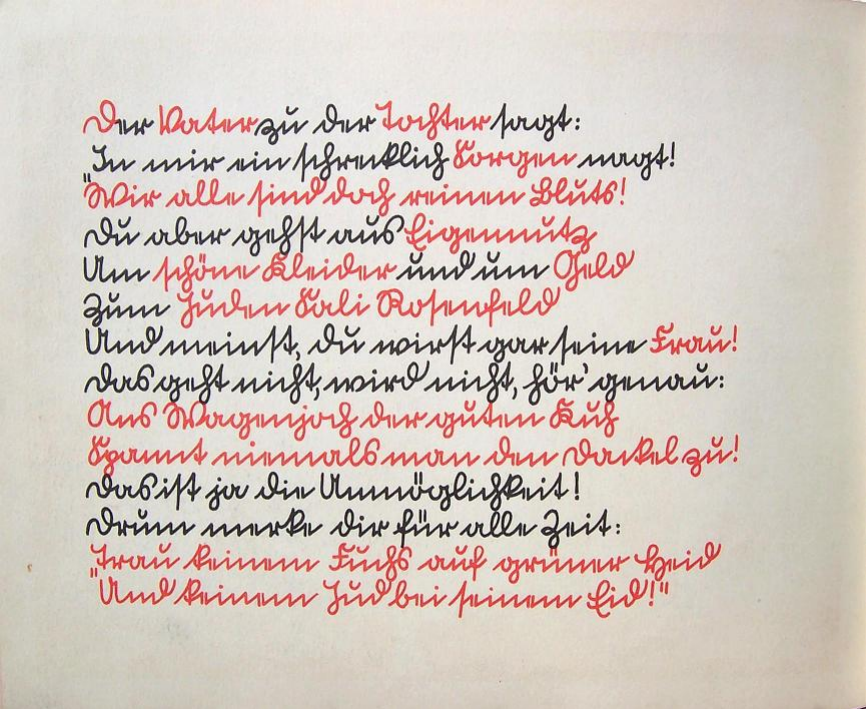 Der Vater zu der Tochter sagt:
"In mir ein schrecklich Sorgen nagt!
"Wir alle sind doch reinen Bluts!
Du aber gehst aus Eigennutz
Um schöne Kleider und um Geld
Zum Juden Sali Rosenfeld
Und meinst, du wirst gar seine Frau!
Das geht nicht, wird nicht, hör' genau:
Ans Wagenjoch der guten Kuh
Spannt niemals man den Dackel zu!
Das ist ja die Unmöglichkeit!
Drum merke dir für alle Zeit:
"Trau keinem Fuchs auf grüner Heid
"Und keinem Jud bei seinem Eid!"